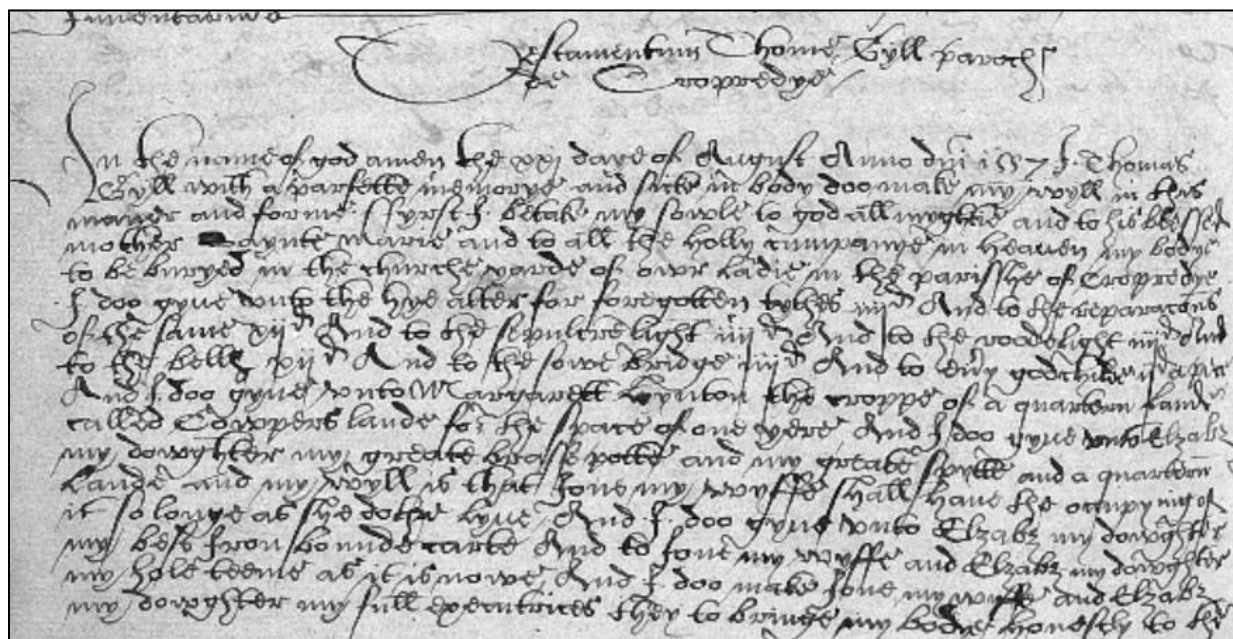 Inventarium
Testamentum Thome Gyll paroch
de Cropredye
In the name of god amen the xxj daye of August Anno dni 1557 I Thomas
Gyll with a parfette memorye and sicke in body doo make my wyll in this
maner and forme ffyrst I betake my sowle to god all myghtie and to his blessed
mother Saynte Marie and to all the holly cumpanye in heaven my bodye
to be buryed in the churche yarde of owr Ladie in the parisshe of Cropredye
I doo gyue vnto the hye alter for foregotten tythes iiijd And to the reparacons
of the same xijd And to the sepulcre light iiijd And to the roode light iiijd And
to the bells xijd And to the sowe bridge iiijd And to eury godchilde ijd a pece
And I doo gyue vnto Margarett Lynton the croppe of a quartern lande
called Cowpers lande for the space of one yere And I doo gyue vnto Elzabz
my dowghter my greate brasse potte and my greate spytte and a quartern
Lande and my wyll is that Jone my wyffe shall haue the occupying of
it so longe as she dothe lyue And I doo gyue vnto Elzabz my dowghter
my best Iron bounde carte And to Jone my wyffe and Elzabz my dowghter
my hole teeme as it is nowe And I doo make Jone my wyffe and Elzabz
my dowghter my full executrices they to bringe my bodye honestly to the